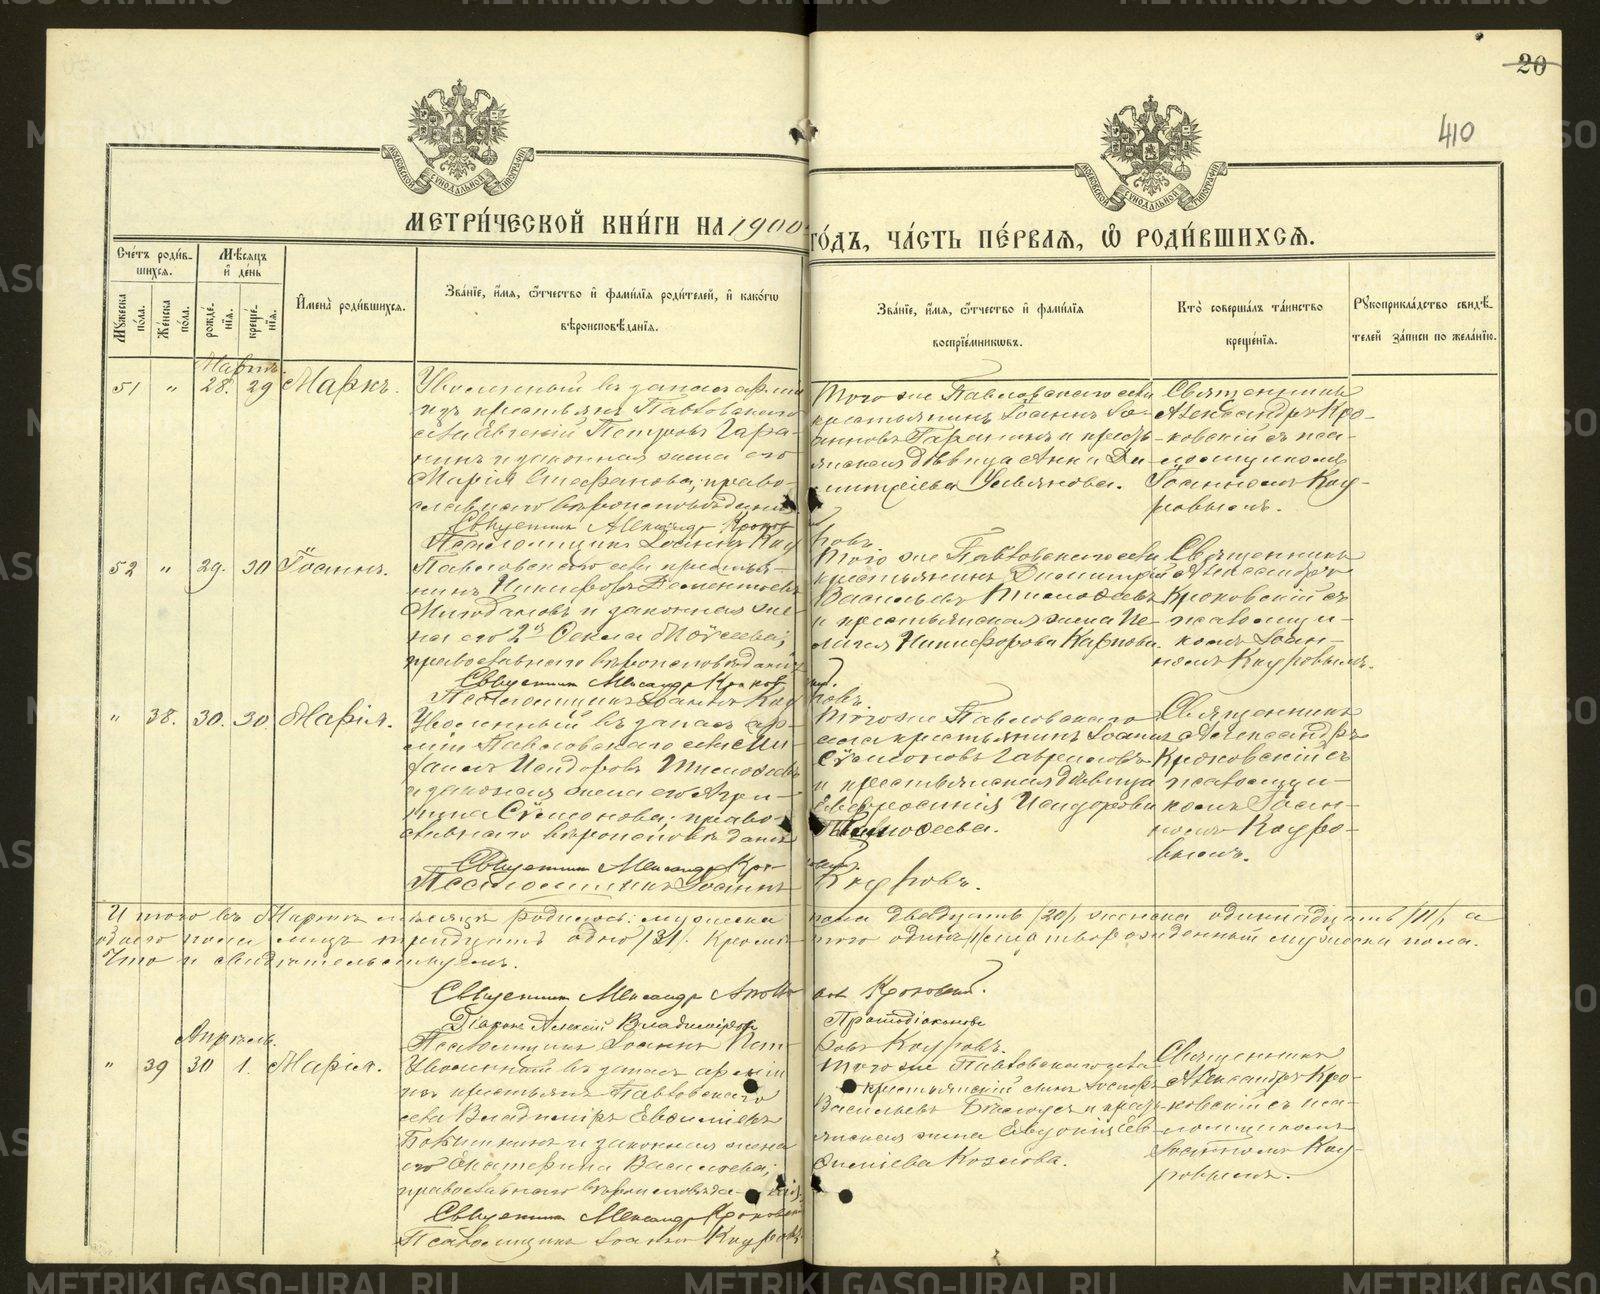 20
410
МЕТРИ́ЧЕСКОЙ КНИ́ГИ НА 1900 ГО́ДЪ, ЧА́СТЬ ПЕ́РВАЯ, Ѡ РОДИ́ВШИХСЯ.
Сче́тъ роди́в-
шихся.
Мѣ́сяцъ
и де́нь
Му́жеска по́ла.
Же́нска по́ла.
рожде́-нія.
креще́-нія.
Имена̀ роди́вшихся.
Зва́ніе, и́мя, о́тчество и фами́лія роди́телей, и како́гѡ
вѣроисповѣ́данія.
Зва́ніе, и́мя, о́тчество и фами́лія
воспріе́мниковъ.
Кто̀ соверша́лъ та́инство
креще́нія.
Рукоприкла́дство свидѣ́-
телей за́писи по жела́нію.
Мартъ.
51 " 28. 29 Маркъ.
Уволенный въ запасъ арміи
изъ крестьянъ Павловскаго
села Евгеній Петровъ Гара-
нинъ и законная жена его
Марія Стефанова, право-
славнаго вѣроисповѣданія.
Священникъ Александр Кроковскій.
Псаломщикъ Іоаннъ Кауровъ.
Того же Павловскаго села
крестьянинъ Іоаннъ Іо-
анновъ Гаранинъ и кресть-
янская дѣвица Анна Ди-
митріева Ульянова.
Священникъ
Александръ Кро-
ковскій съ пса-
ломщикомъ
Іоанномъ Кау-
ровымъ.
52 " 29. 30 Іоаннъ.
Павловскаго села крестья-
нинъ Никифоръ Клементьевъ
и законная же-
на его 2я Ѳекла Моѵсеева;
православнаго вѣроисповѣданія
Священникъ Александр Кроковскій.
Псаломщикъ Іоаннъ Кауровъ.
Того же Павловскаго села
крестьянинъ Димитрій
Васильевъ
и крестьянская жена Пе-
лагія Никифорова Карпова.
Священникъ
Александръ
Кроковскій съ
псаломщи-
комъ Іоан-
номъ Кауровымъ.
" 38. 30. 30. Марія.
Уволенный въ запасъ ар-
міи Павловскаго села Ми-
хаилъ Исидоровъ
и законная жена его Агри-
пина Сѵмеонова; право-
славнаго вѣроисповѣданія
Священникъ Александр Кроковскій.
Псаломщикъ Іоаннъ Кауровъ.
Того же Павловскаго
села крестьянинъ Іоаннъ
Сѵмеоновъ Гавриловъ
и крестьянская дѣвица
Евфросинія Исидорова
Священникъ
Александръ
Кроковскій съ
псаломщи-
комъ Іоан-
номъ Кауро-
вымъ.
Итого въ Мартѣ мѣсяцѣ родилось: мужеска пола двадцать /20/, женска одиннадцать /11/, а
обоего пола лицъ тридцать одно /31/. Кромѣ того одинъ /1/ мертворожденный мужеска пола.
Что и свидѣтельствуемъ.
Священникъ Александр Кроковскій.
Діаконъ Алексій Владиміровъ
Псаломщикъ Іоаннъ Кауровъ.
Апрѣль.
" 39 30 1. Марія.
Уволенный въ запасъ арміи
изъ крестьянъ Павловскаго
села Владиміръ Евѳиміевъ
и законная жена
его Екатерина Васильева;
православнаго вѣроисповѣда-нія.
Священникъ Александр Кроковскій
Псаломщикъ Іоаннъ Кауровъ
Того же Павловскаго села
крестьянскій сынъ
Васильевъ и кресть-
янская жена Евдокія Ев-
ѳиміева Козлова.
Священникъ
Александръ Кро-
ковскій съ пса-
ломщикомъ
Іоанномъ Кау-
ровымъ.
METRIKI.GASO-URAL.RU